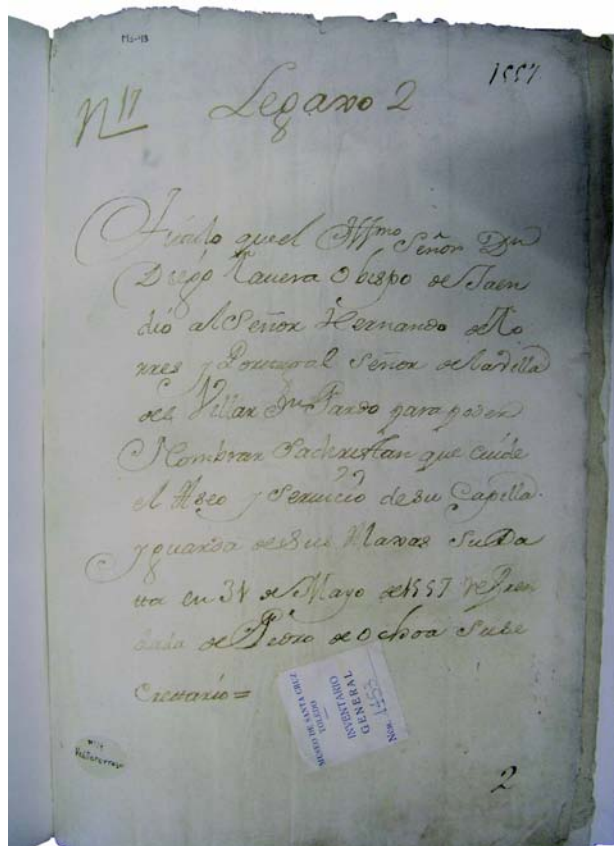 MS-43
1557
N 17
Legaxo 2
Título que el Illmo Señor Dn
Diego Tavera Obispo de Jaen
dió al Señor Hernando de To
rres y Portugal Señor de la villa
del Villar Dn Pardo para poder
Nombrar Sachristan que cuide
el Aseo y Servicio de su Capilla
y guarda de sus Llaves Su Da
tta en 31 de Mayo de 1557 Refren
dada de Pedro de Ochoa su Se
crettario=
MUSEO DE SANTA CRUZ
TOLEDO
INVENTARIO
GENERAL
Núm. 1453
Valparaiso
2